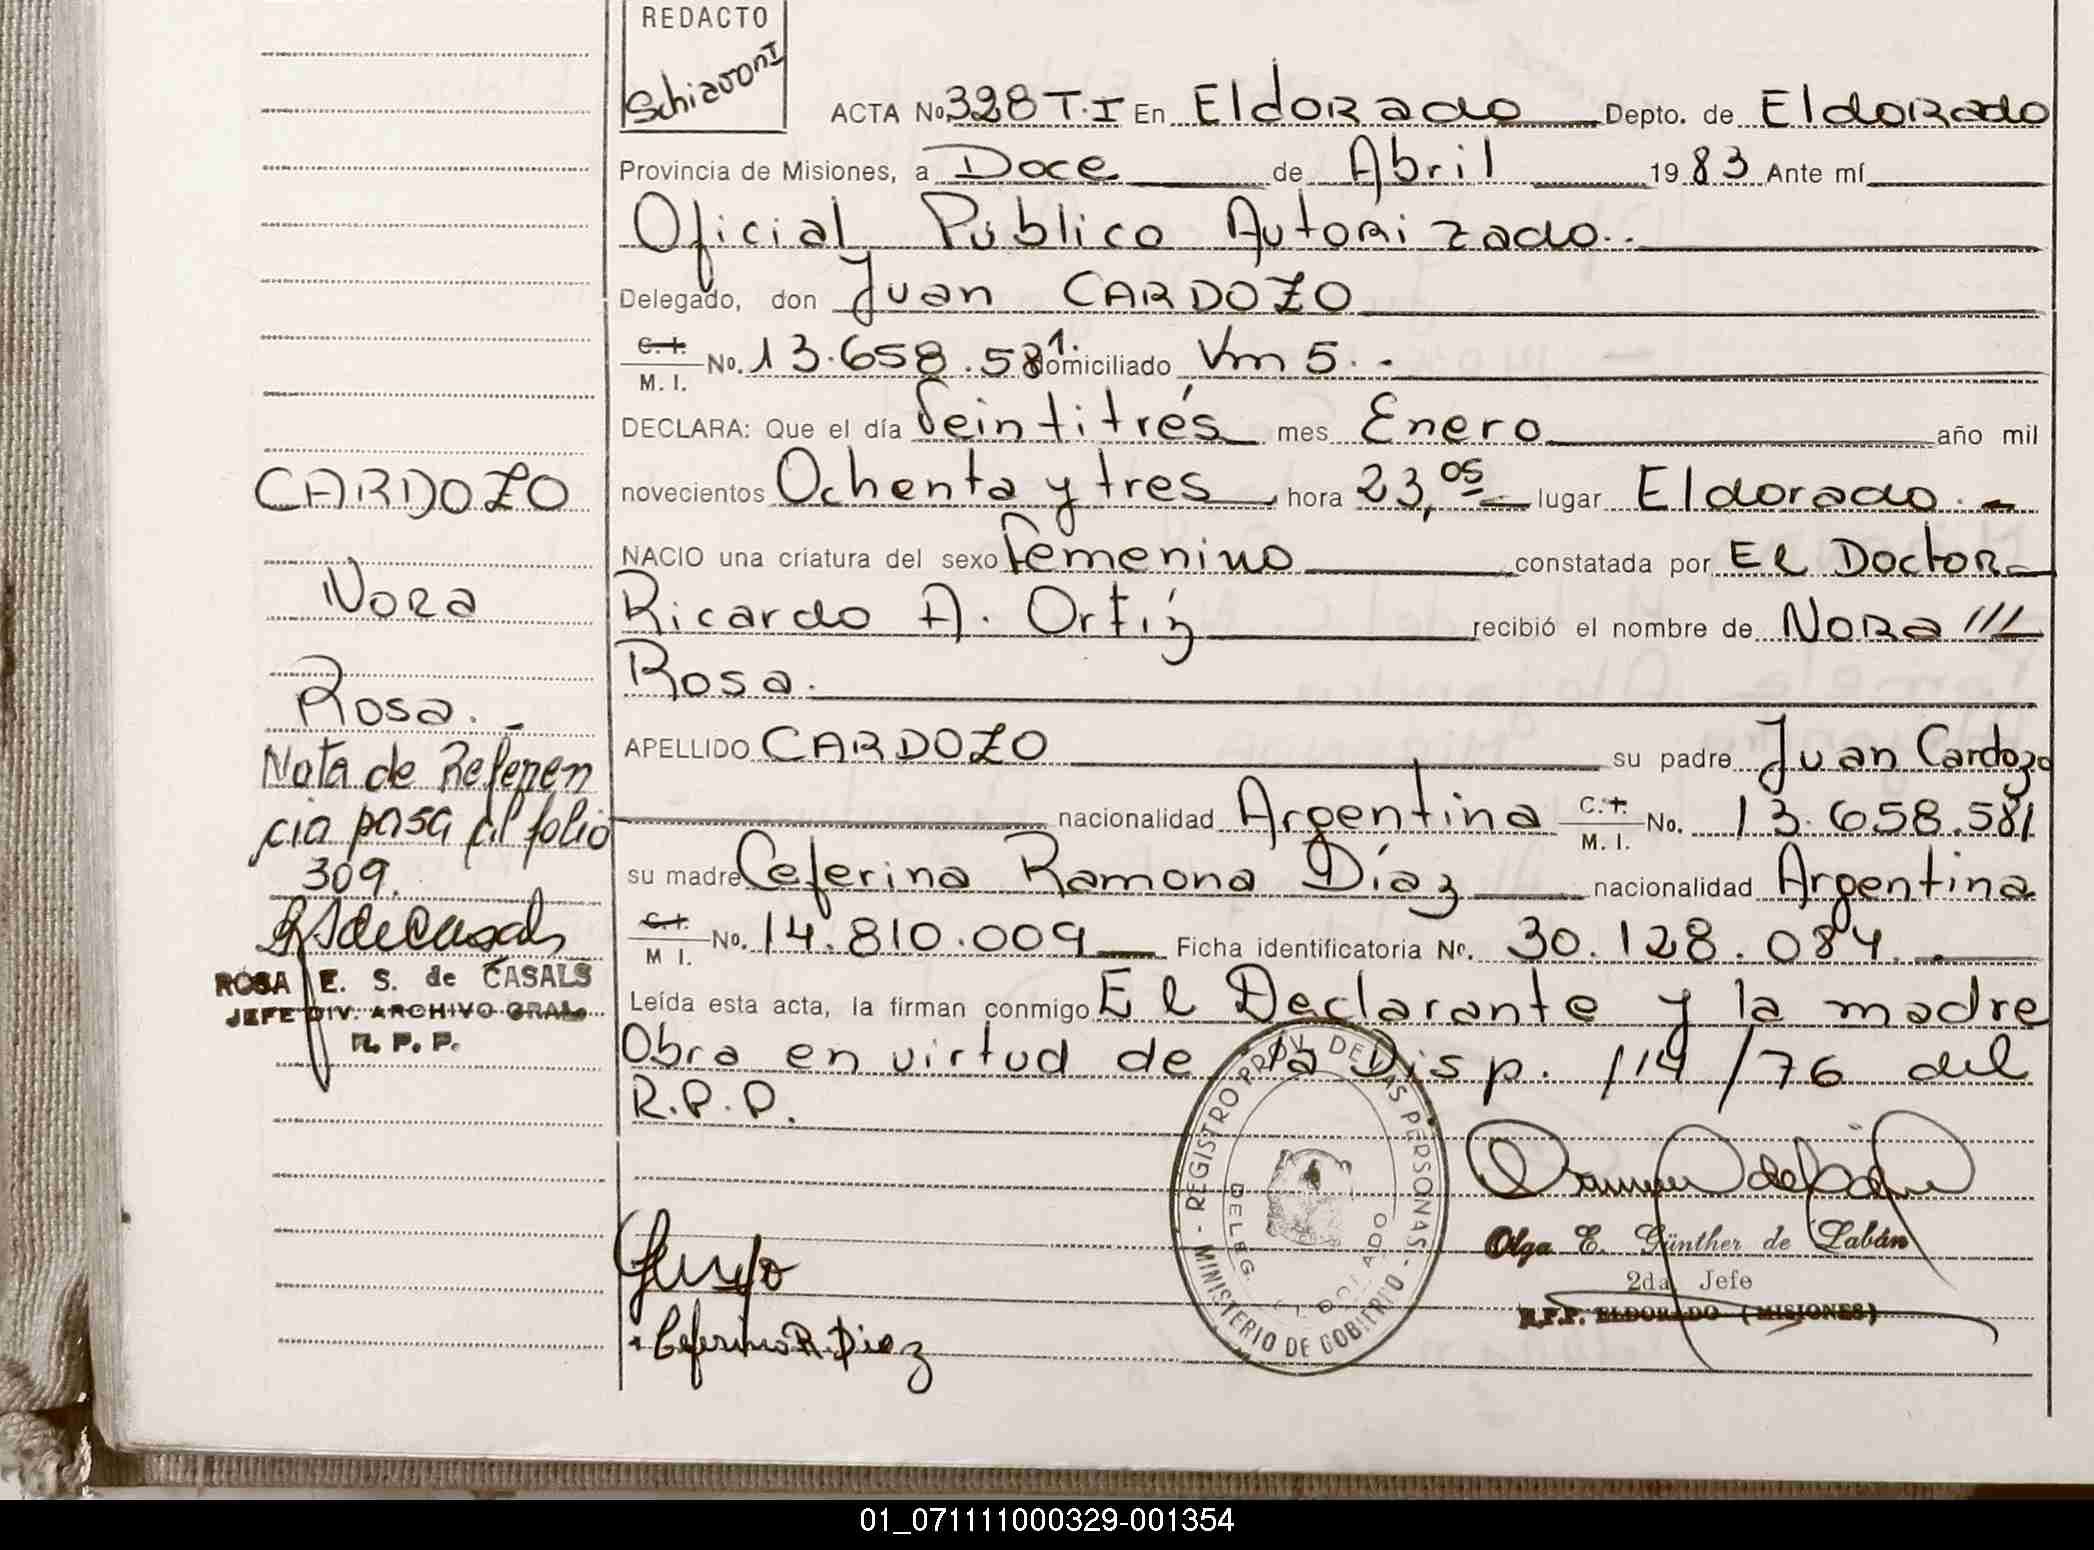 REDACTO
Schiavoni
ACTA No 328 T.I En Eldorado Depto. de Eldorado
Provincia de Misiones, a Doce de Abril 1983 Ante mí
Oficial Público Autorizado..
Delegado, don Juan CARDOZO
C. I. M. I. No. 13.658.581. domiciliado Km 5. -
DECLARA: Que el día Veintitrés mes Enero año mil
novecientos Ochenta y tres hora 23,05 lugar Eldorado. -
NACIO una criatura del sexo femenino constatada por El Doctor
Ricardo A. Ortíz recibió el nombre de Nora ///
Rosa.
APELLIDO CARDOZO su padre Juan Cardozo
nacionalidad Argentina C. I. M. I. No. 13.658.581
su madre Ceferina Ramona Díaz nacionalidad Argentina
C. I. M I. No. 14.810.009 Ficha identificatoria No. 30.128.084.
Leída esta acta, la firman conmigo El Declarante y la madre
Obra en virtud de la Disp. 114/76 del
R.P.P.
CARDOZO
Nora
Rosa. -
Nota de Referen
cia pasa al folio
309.
ROSA E. S. de CASALS
JEFE DIV. ARCHIVO GRAL.
R. P. P.
- REGISTRO PROV. DE LAS PERSONAS -
MINISTERIO DE GOBIERNO
DELEG.
ELDORADO
Ceferina R. Diaz
Olga E. Günther de Labán
2da. Jefe
R.P.P. ELDORADO (MISIONES)
01_071111000329-001354